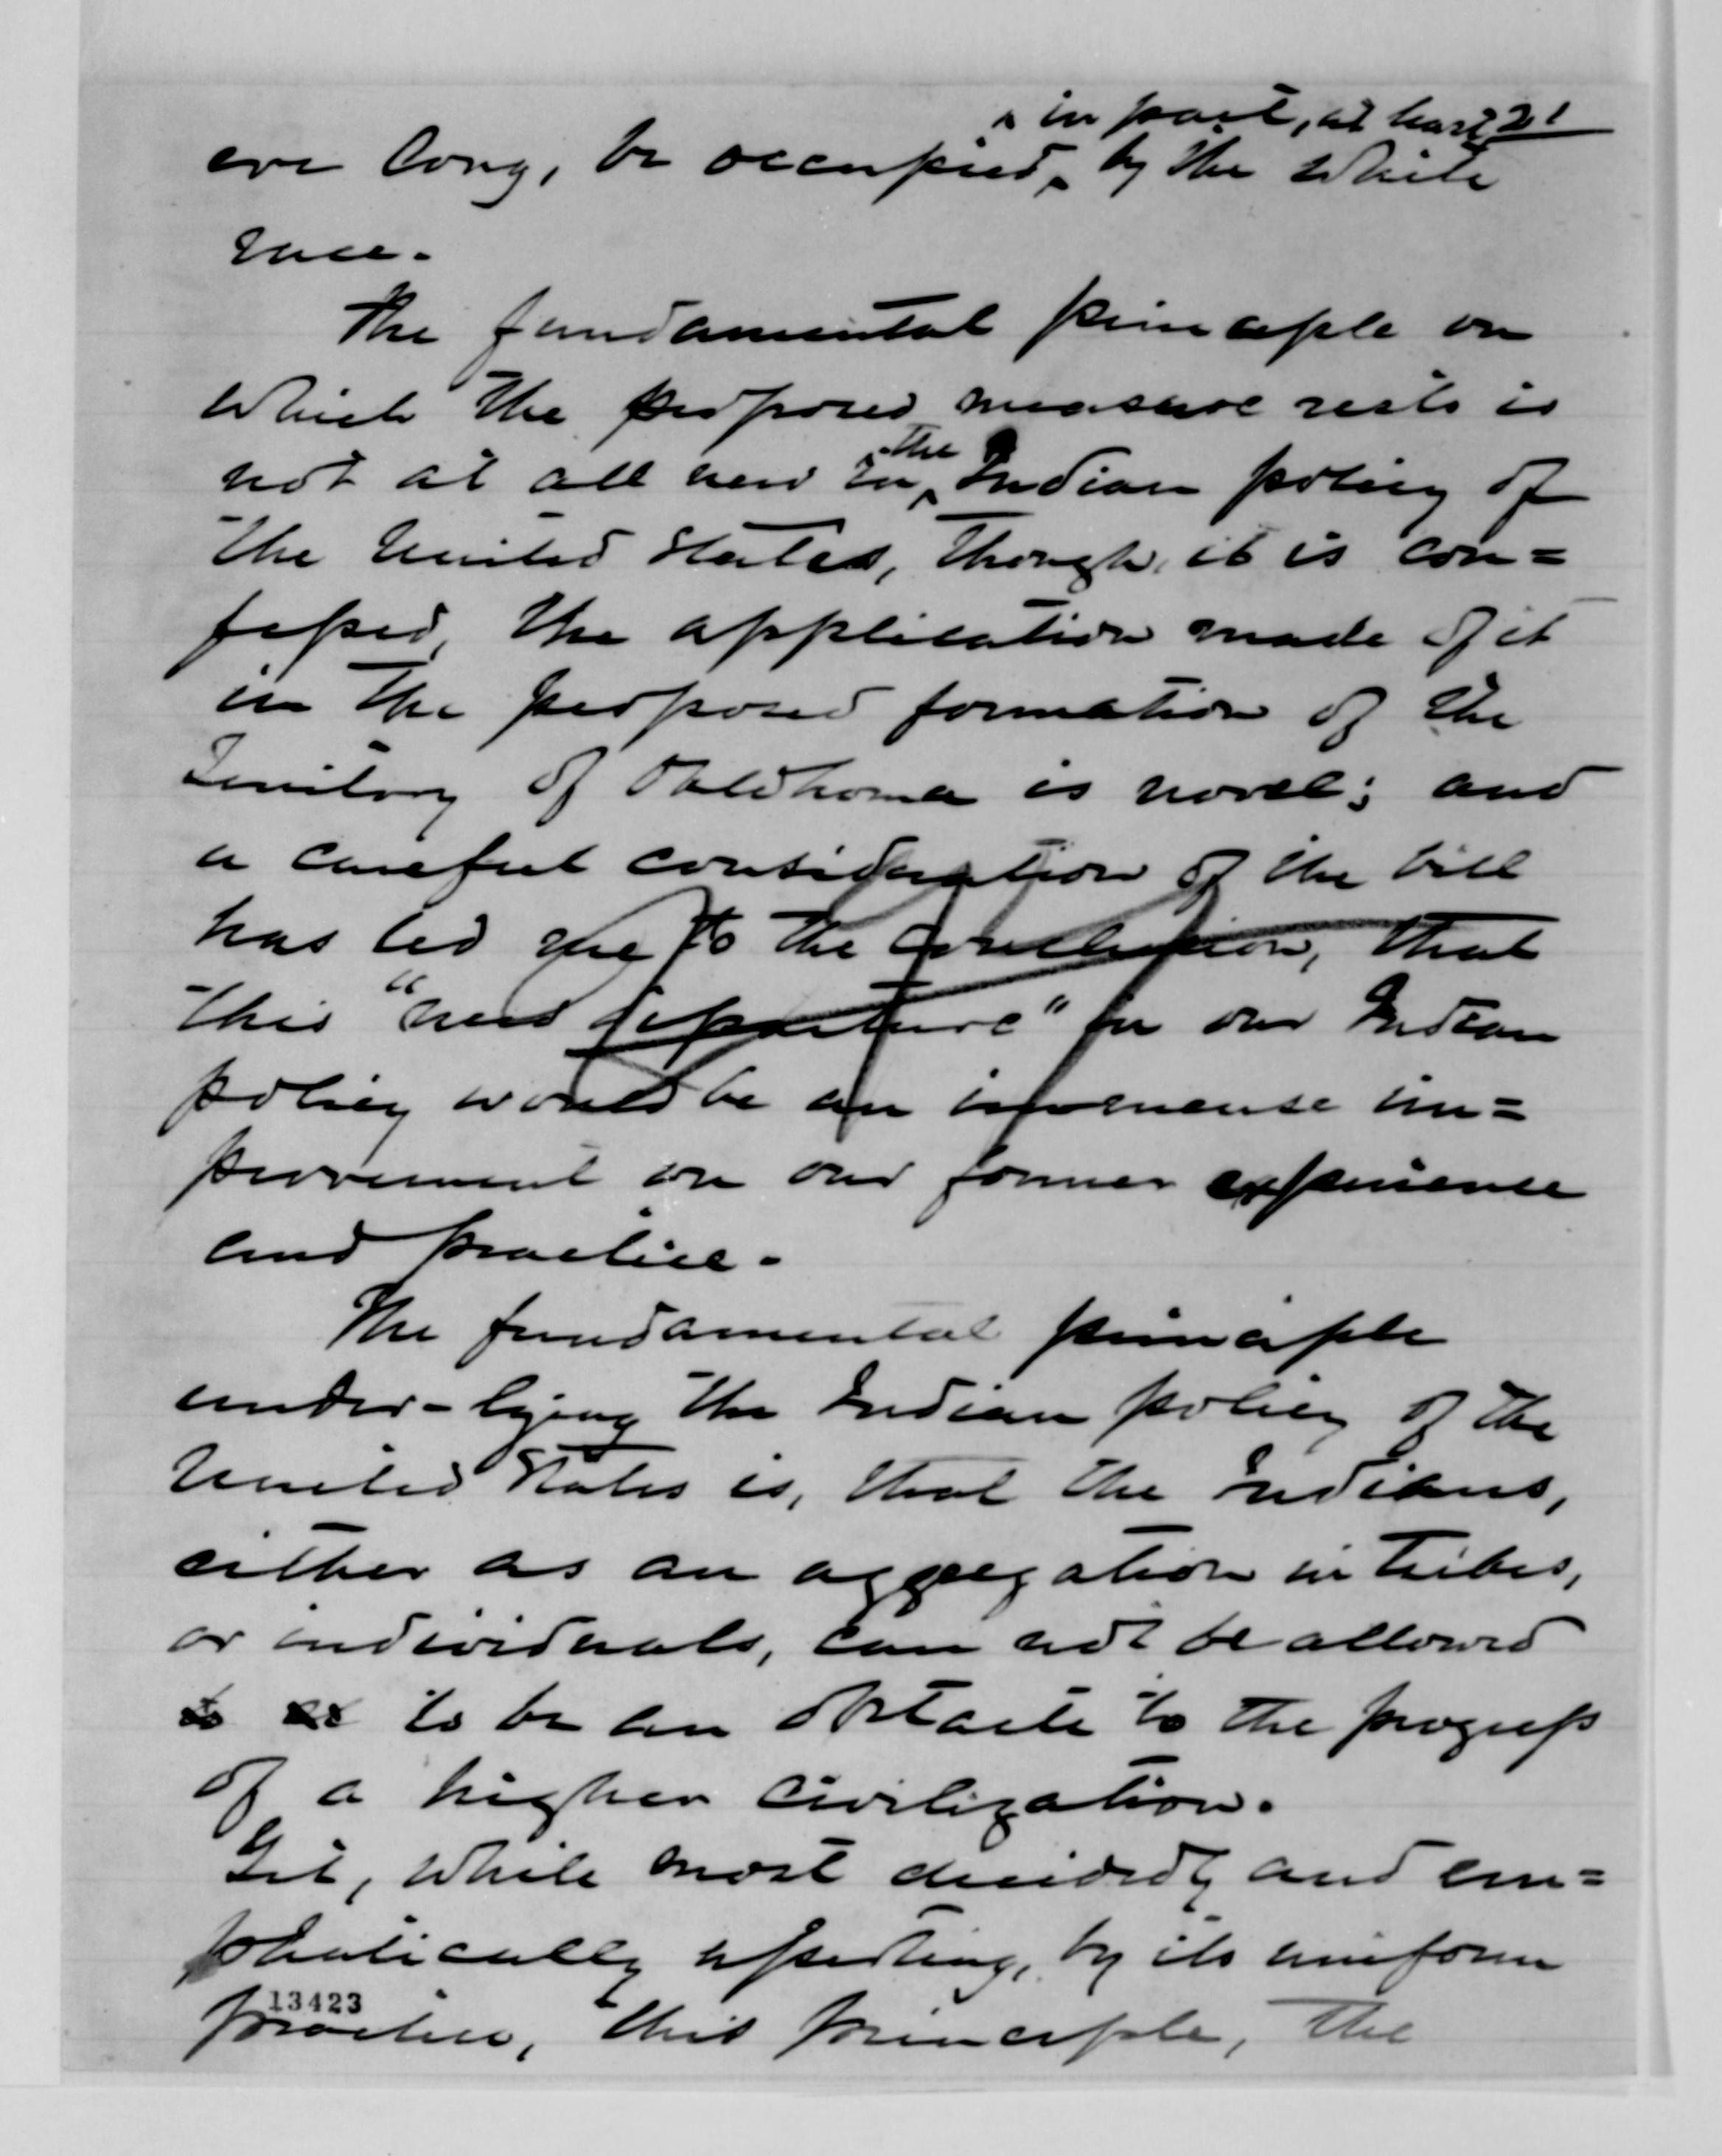 in part, at least 21
ere long, be occupied, by the White
race.
The fundamental principle on
which the proposed measure rests is
not at all new in the Indian policy of
the United States, though, it is con=
fessed, the application made of it
in the proposed formation of the
Territory of Oklahoma is novel; and
a careful consideration of the bill
has led me to the conclusion, that
this "new departure" in our Indian
policy would be an immense im=
provement on our former experience
and practice.
The fundamental principle
under-lying the Indian policy of the
United States is, that the Indians,
either as an aggregation in tribes,
or individuals, can not be allowed
to be an obstacle to the progress
of a higher civilization.
Yet, while most decidedly and em=
phatically asserting, by its uniform
13423
practice, this principle, the